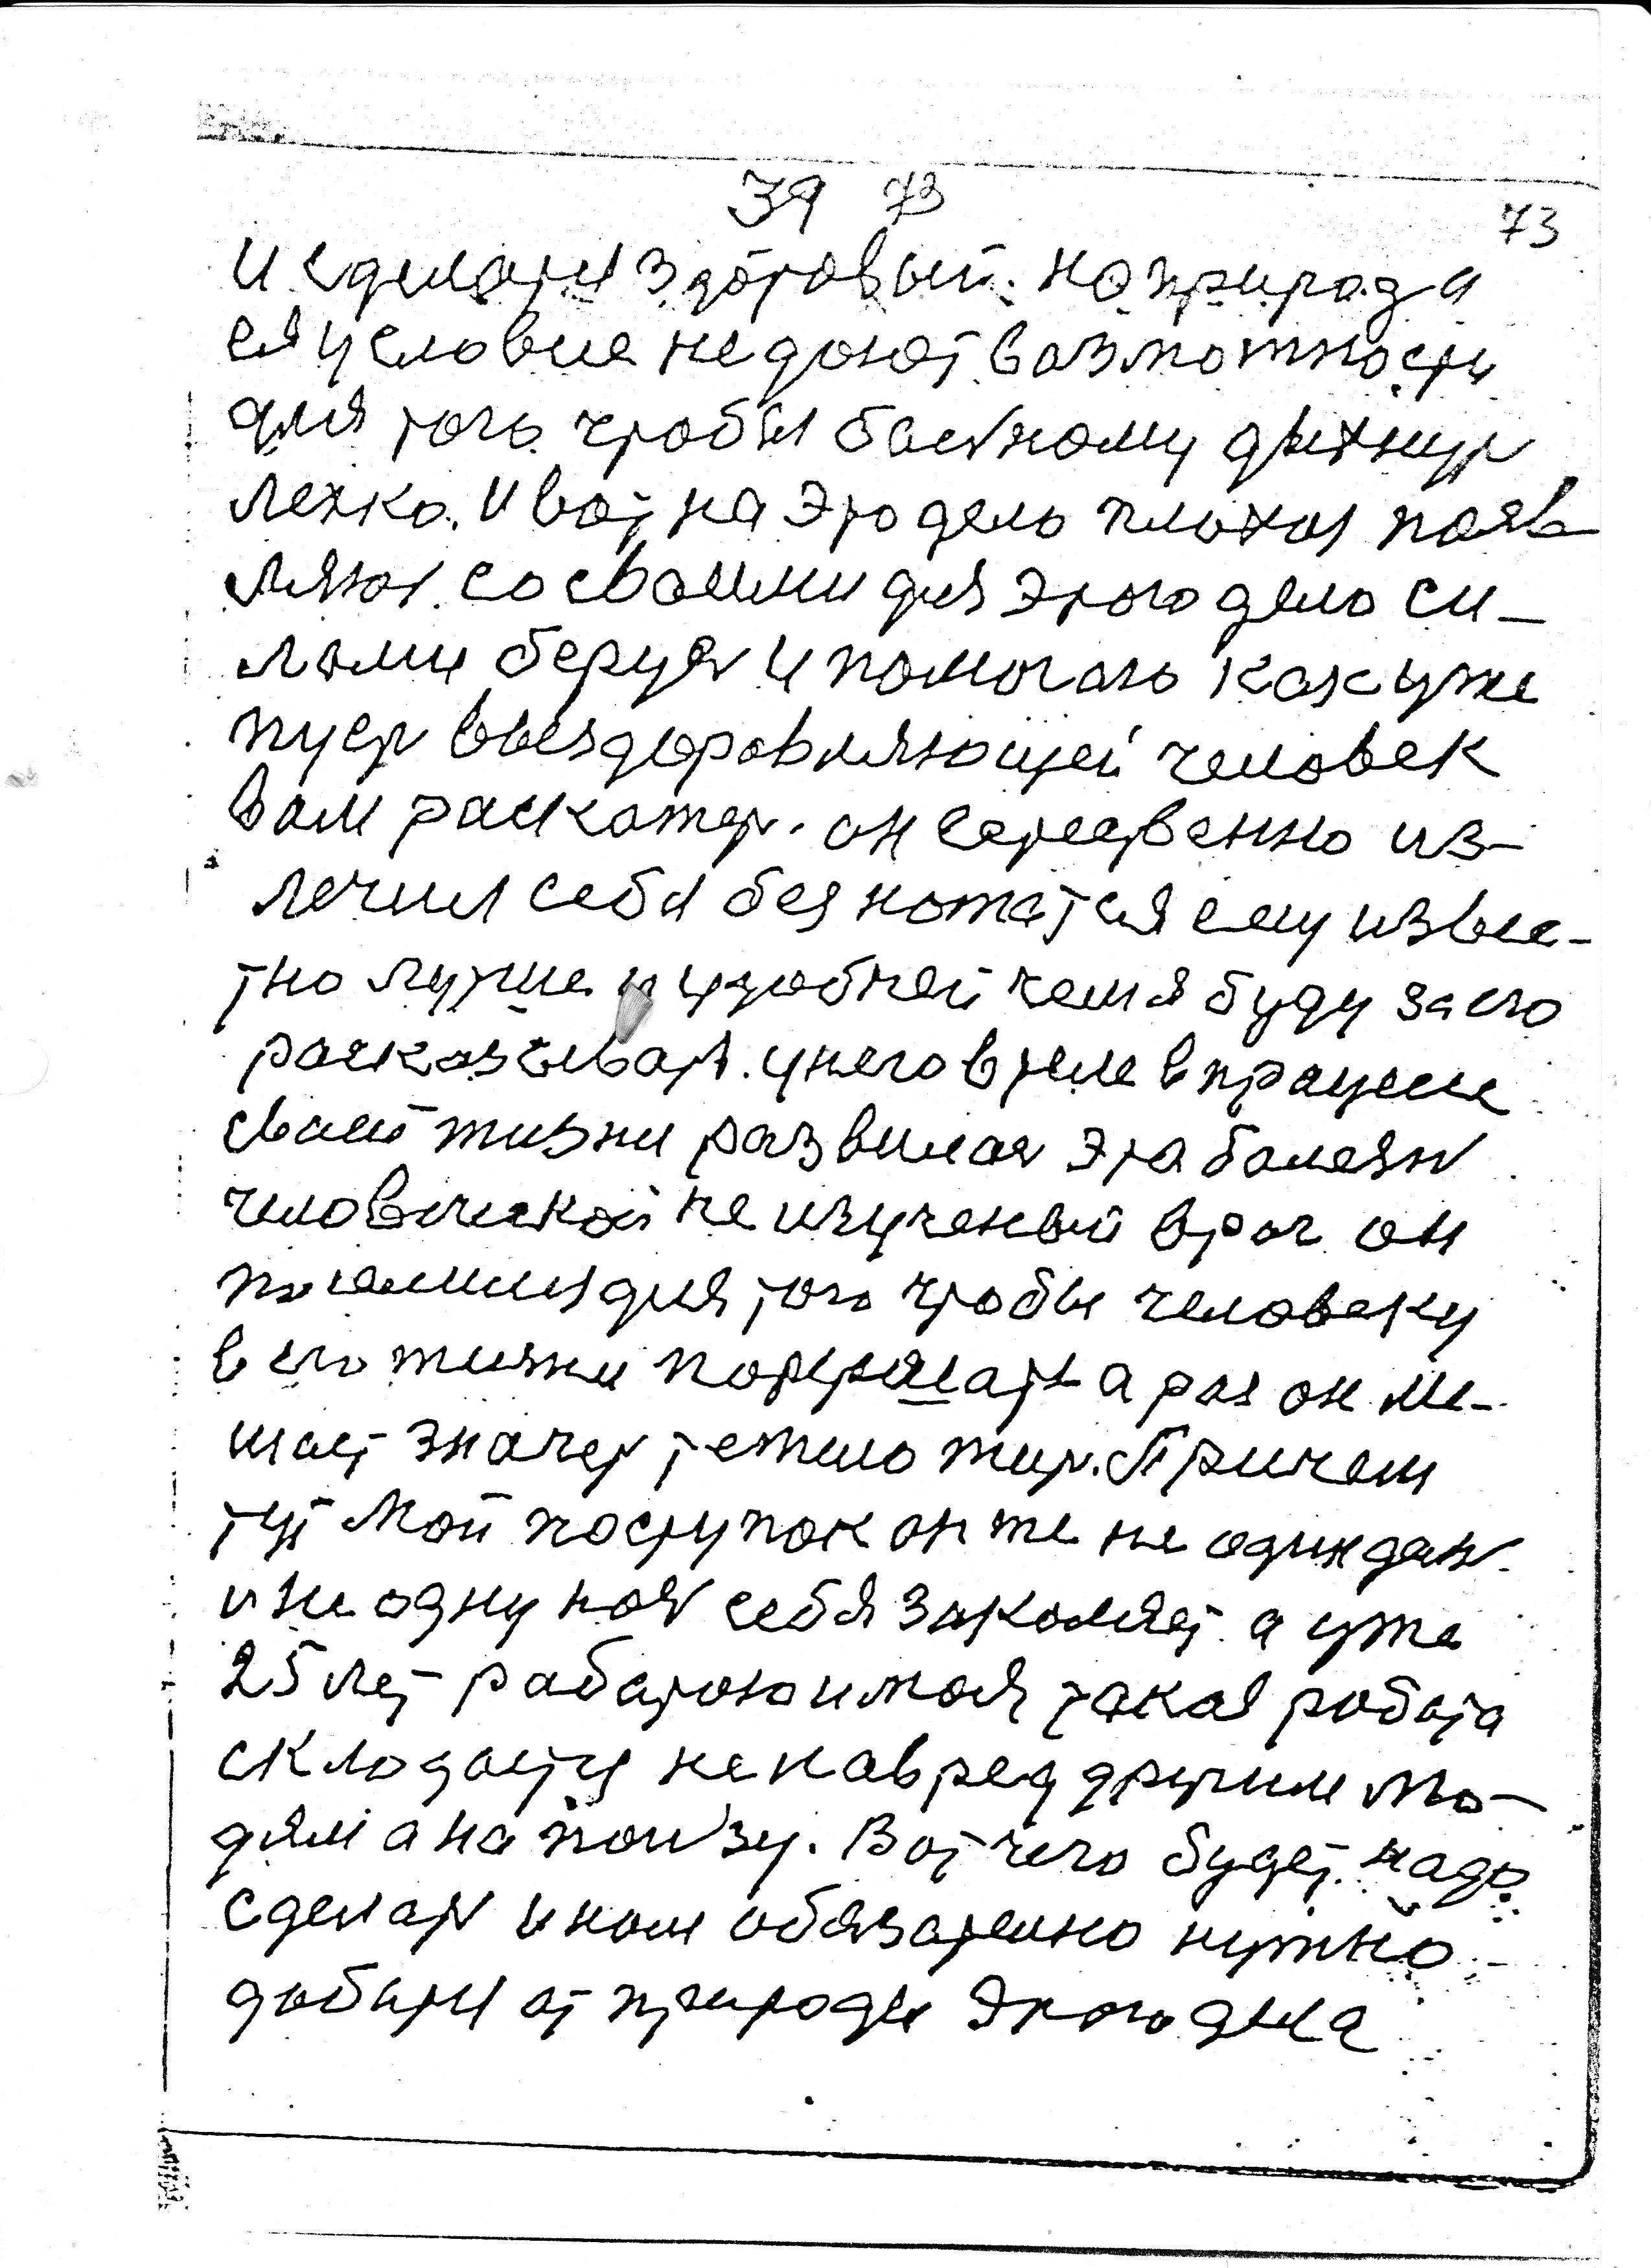 39 73
73
и сделатся здоровый. но природа
ея условие не дают возможности
для того чтобы больному дыхнуть
легко. И вот на это дело плохое появ-
ляюс со своими для этого дела си-
лами берусь и помогаю как уже
пусть выездоровляющей человек
вам раскажеть. он естественно из-
лечил себя без ножа тся ему извес-
тно лутше и удобней чем я буду за его
расказывать. у него в теле в працесе
своей жизни развилась эта болезнь
человеческой не изученый враг он
для того чтобы человеку
в его жизни а раз он ме-
шает значеть тежело жить. Причем
тут Мой поступок он же не один день
и не одну ночь себя закаляет а уже
25 лет работою и моя такая робота
складается не на вред другим лю-
дям а на ползу. Вот чего будет надо
сделать и нам обязательно нужно
добится от природы этого дела